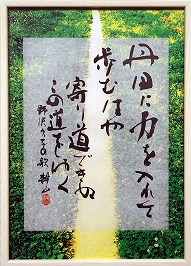 丹田に力を入れて
歩むはや
寄り道できぬ
この道をゆく